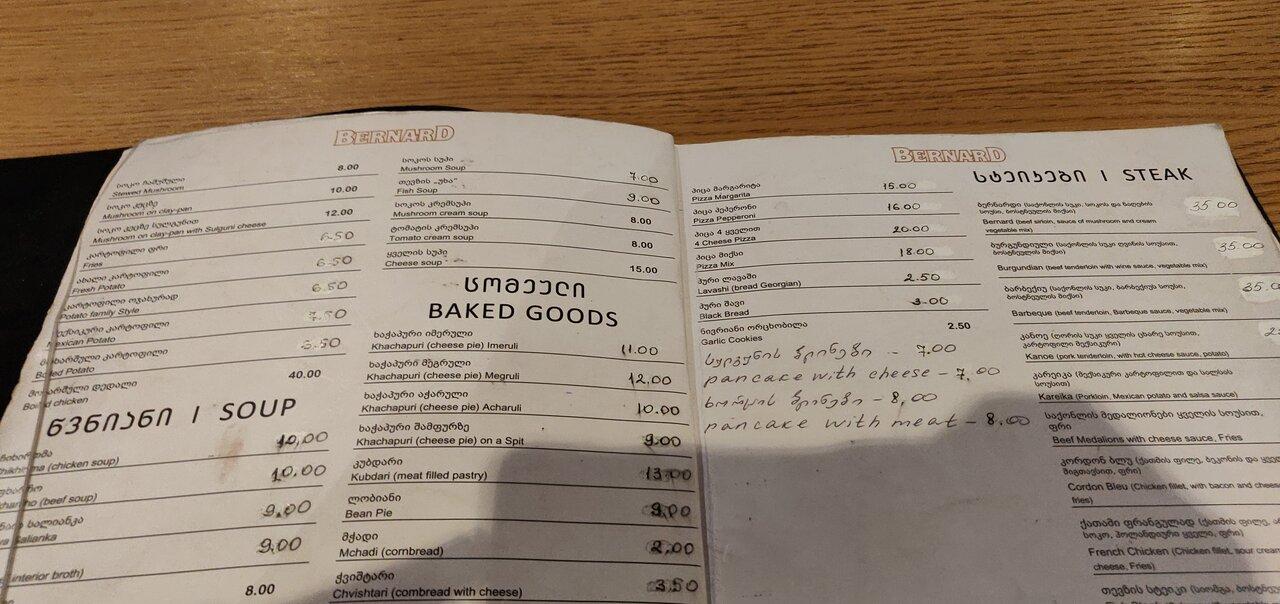 BERNARD
სოკო ჩაშუშული 8.00
Stewed Mushroom
სოკო კეცზე 10.00
Mushroom on clay-pan
სოკო კეცზე სულგუნით 12.00
Mushroom on clay-pan with Sulguni cheese
კარტოფილი ფრი 6.50
Fries
ახალი კარტოფილი 6.50
Fresh Potato
კარტოფილი ოჯახურად 6.50
Potato family Style
მექსიკური კარტოფილი 7.50
Mexican Potato
მოხარშული კარტოფილი
Boiled Potato
მოხარშული დედალი 40.00
Boiled chicken
წვნიანი | SOUP
10,00
(chicken soup)
10.00
(beef soup)
სალიანკა 9.00
Salianka
9,00
(interior broth)
8.00
სოკოს სუპი 7.00
Mushroom Soup
თევზის „უხა“ 9.00
Fish Soup
სოკოს კრემსუპი 8.00
Mushroom cream soup
ტომატის კრემსუპი 8.00
Tomato cream soup
ყველის სუპი 15.00
Cheese soup
ცომეული
BAKED GOODS
ხაჭაპური იმერული
Khachapuri (cheese pie) Imeruli 11.00
ხაჭაპური მეგრული
Khachapuri (cheese pie) Megruli 12,00
ხაჭაპური აჭარული
Khachapuri (cheese pie) Acharuli 10.00
ხაჭაპური შამფურზე
Khachapuri (cheese pie) on a Spit 9.00
კუბდარი
Kubdari (meat filled pastry) 13.00
ლობიანი
Bean Pie 9,00
მჭადი
Mchadi (cornbread) 2.00
ჭვიშტარი
Chvishtari (combread with cheese) 3.50
BERNARD
პიცა მარგარიტა 15.00
Pizza Margarita
პიცა პეპერონი 16.00
Pizza Pepperoni
პიცა 4 ყველით 20.00
4 Cheese Pizza
პიცა მიქსი 18.00
Pizza Mix
პური ლავაში 2.50
Lavashi (bread Georgian)
პური შავი 3.00
Black Bread
ნივრიანი ორცხობილა 2.50
Garlic Cookies
ბლინები - 7.00
pancake with cheese - 7.00
ხორცის ბლინები - 8,00
pancake with meat - 8.00
სტეიკები | STEAK
ბერნარდი (საქონლის სუკი, სოკოს და ნაღების 35.00
სოუსი, ბოსტნეულის მიქსი)
Bernard (beef sirloin, sauce of mushroom and cream
vegetable mix)
ბურგუნდიული (საქონლის სუკი ღვინის სოუსით, 35.00
ბოსტნეულის მიქსი)
Burgundian (beef tenderloin with wine sauce, vegetable mix)
ბარბექიუ (საქონლის სუკი, ბარბექიუს სოუსი, 35.0
ბოსტნეულის მიქსი)
Barbeque (beef tenderloin, Barbeque sauce, vegetable mix)
კანოე (ღორის სუკი ყველის ცხარე სოუსით,
კარტოფილი მექსიკური)
Kanoe (pork tenderloin, with hot cheese sauce, potato)
კარეიკა (მექსიკური კარტოფილით და სალსას
სოუსით)
Kareika (Porkloin, Mexican potato and salsa sauce)
საქონლის მედალიონები ყველის სოუსით,
ფრი
Beef Medalions with cheese sauce, Fries
კორდონ ბლუ (ქათმის ფილე, ბეკონის და
ფრი)
Cordon Bleu (Chicken fillet, with bacon and cheese
fries)
ქათამი ფრანგულად (ქათმის ფილე,
სოკო, ჰოლანდიური ყველი, ფრი)
French Chicken (Chicken fillet, sour cream
cheese, Fries)
თევზის სტეიკი